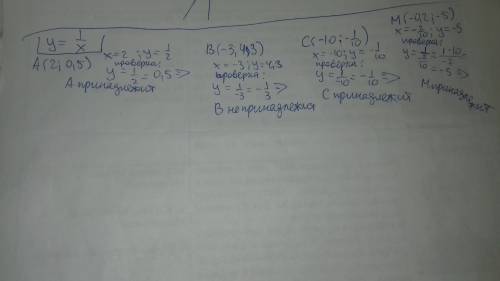 y = 1/x
A(2; 0,5)
x = 2; y = 1/2
проверка:
y = 1/2 = 0,5 =>
А принадлежит
B(-3; 4,3)
x = -3; y = 4,3
проверка:
y = 1/-3 = -1/3 =>
В не принадлежит
C(-10; -1/10)
x = -10; y = -1/10
проверка:
y = 1/-10 = -1/10 =>
С принадлежит
M(-0,2; -5)
x = -2/10; y = -5
проверка:
= -5 =>
М принадлежит